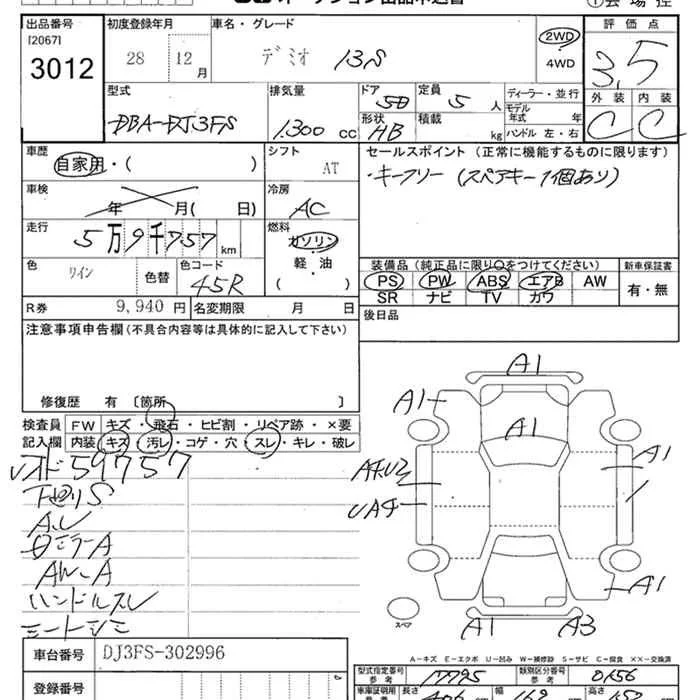 オークション出品申込書
①会場控
出品番号 初度登録年月 車名・グレード 評価点
[2067]
3012 28 12月 デミオ 13S 2WD 4WD 3.5
型式 排気量 ドア 定員 ディーラー・並行 外装 内装
DBA-DJ3FS 1.300 cc 5D 5人 モデル年式 年 C C
形状 HB 積載 kg ハンドル 左・右
車歴 シフト セールスポイント (正常に機能するものに限ります)
自家用・( ) AT ・キーフリー (スペアキー1個あり)
車検 冷房
年 月( 日) AC
走行 燃料
5万9千757km ガソリン
軽・油
( )
色 色コード 装備品 (純正品に限り○をつけてください) 新車保証書
ワイン 色替 45R PS PW ABS エアB AW 有・無
SR ナビ TV カワ
R券 9,940円 名変期限 月 日 後日品
注意事項申告欄 (不具合内容等は具体的に記入して下さい)
修復歴 有 〔箇所 〕
検査員 FW キズ・飛石・ヒビ割・リペア跡・×要
記入欄 内装 キズ・汚レ・コゲ・穴・スレ・キレ・破レ
59757
下廻りS
ハンドルスレ
シートシミ
A1
A1
A1
A1
A1
A1 A3
スペア
A-キズ E-エクボ U-凹み W-補修跡 S-サビ C-腐食 ××-交換済
車台番号 DJ3FS-302996
登録番号
型式指定番号 参考 17795 類別区分番号 参考 0156
車庫証明用 長さ 406 cm 幅 169 cm 高さ